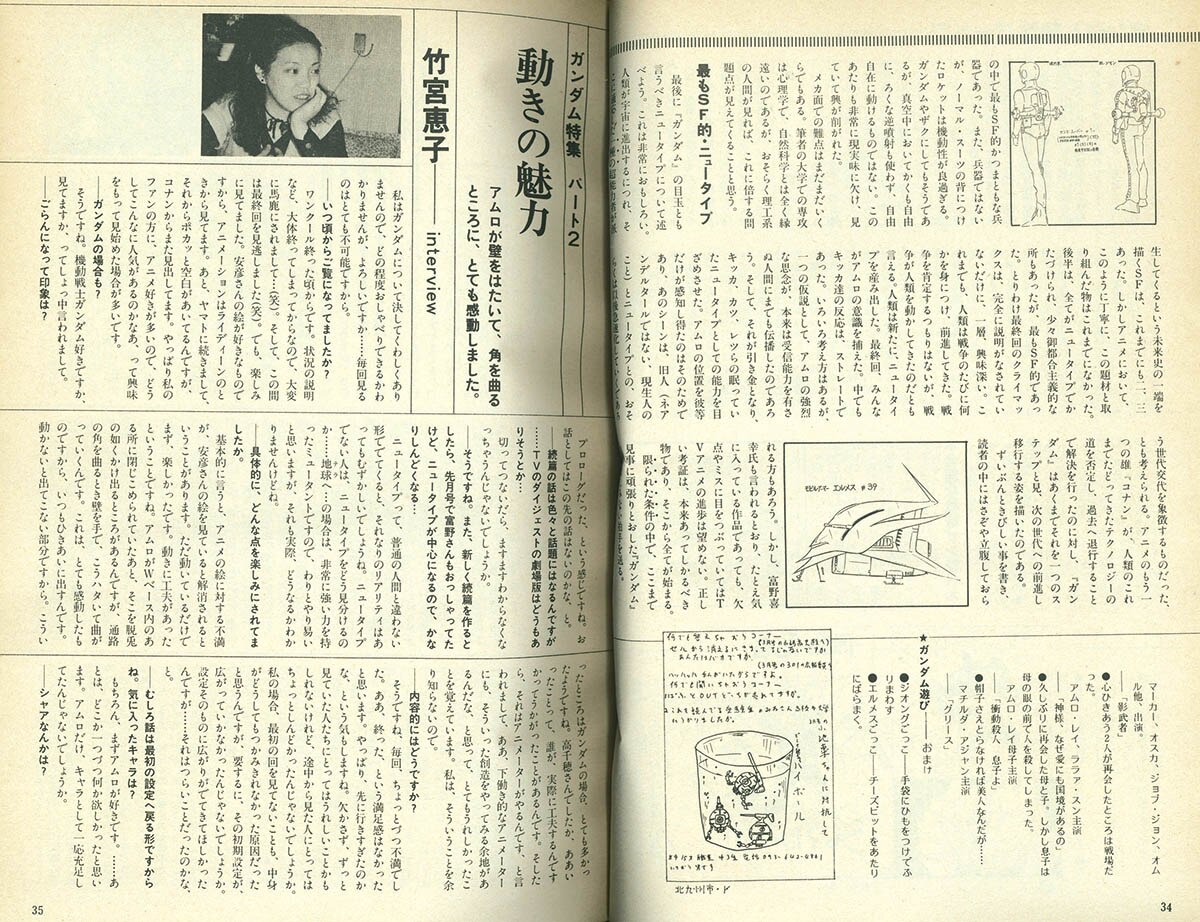 の中で最もSF的かつまともな兵
器であった。また、兵器ではない
が、ノーマル・スーツの背につけ
たロケットは機動性が良過ぎる。
ガンダムやザクにしてもそうであ
るが、真空中においてかくも自由
に、ろくな逆噴射も使わず、自由
自在に動けるものではない。この
あたりも非常に現実味に欠け、見
ていて興が削がれた。
メカ面での難点はまだまだいく
らでもある。筆者の大学での専攻
は心理学で、自然科学とは全く縁
遠いのであるが、おそらく理工系
の人間が見れば、これに倍する問
題点が見えてくることと思う。
最もSF的・ニュータイプ
最後に『ガンダム』の目玉とも
言うべきニュータイプについて述
べよう。これは非常におもしろい。
人類が宇宙に進出するにつれ、そ
生してくるという未来史の一端を
描くSFは、これまでにも二、三
あった。しかしアニメにおいて、
このように丁寧に、この題材と取
り組んだ物はこれまでになかった。
後半は、全てがニュータイプでか
たづけられ、少々御都合主義的な
所もあったが、最もSF的であっ
た。とりわけ最終回のクライマッ
クスは、完全に説明がなされてい
ないだけに、一層、興味深い。こ
れまでも、人類は戦争のたびに何
かを身につけ、前進してきた。戦
争を肯定するつもりはないが、戦
争が人類を動かしてきたのだとも
言える。人類は新たに、ニュータイ
プを産み出した。最終回、みんな
がアムロの意識を捕えた。中でも
キッカ達の反応は、ストレートで
あった。いろいろ考え方はあるが、
一つの仮説として、アムロの強烈
な思念が、本来は受信能力を有さ
ぬ人間にまでも伝播したのであろ
う。そして、それが引き金となり、
キッカ、カツ、レツらの眠ってい
たニュータイプとしての能力を目
ざめさせた。アムロの位置を彼等
だけが感知し得たのはそのためで
あり、あのシーンは、旧人(ネア
ンデルタールではない、現生人の
こと)とニュータイプとの、おそ
う世代交代を象徴するものだった、
とも考えられる。アニメのもう一
つの雄『コナン』が、人類のこれ
までたどってきたテクノロジーの
道を否定し、過去へ退行すること
で解決を行ったのに対し、『ガン
ダム』はあくまでそれを一つのス
テップと見、次の世代への前進し
移行する姿を描いたのである。
ずいぶんときびしい事を書き、
読者の中にはさぞや立腹しておら
モビルアーマー エルメス #39
れる方もあろう。しかし、富野喜
幸氏も言われるとおり、たとえ気
に入っている作品であっても、欠
点やミスに目をつぶっていてはT
Vアニメの進歩は望めない。正し
い考証は、本来あってしかるべき
物であり、そこから全てが始まる。
限られた条件の中で、ここまで
見事に頑張りとおした『ガンダム』
マーカー、オスカ、ジョブ・ジョン、オム
ル他、出演。
——「影武者」
●心ひきあう2人が再会したところは戦場だ
アムロ・レイ、ララァ・スン主演
——「神様、なぜ愛にも国境があるの」
●久しぶりに再会した母と子、しかし息子は
母の眼の前で人を殺してしまった。
アムロ・レイ母子主演
——「衝動殺人 息子よ」
●帽子さえとらなければ美人なんだが……
マチルダ・アジャン主演
——「グリース」
★ガンダム遊び——おまけ
●ジオングごっこ——手袋にひもをつけてふ
りまわす
●エルメスごっこ——チーズビットをあたり
にばらまく。
北九州市・ド
34
ガンダム特集 パート2
動きの魅力
アムロが壁をはたいて、角を曲る
ところに、とても感動しました。
竹宮恵子——interview
私はガンダムについて決してくわしくあり
ませんので、どの程度おしゃべりできるかわ
かりませんが、よろしいですか……毎回見る
のはとても不可能ですから。
——いつ頃からご覧になってましたか?
ワンクール終った頃からです。状況の説明
など、大体終ってしまってからなので、大変
に馬鹿にされまして…(笑)。そして、この間
は最終回を見逃しました(笑)。でも、楽しみ
に見てました。安彦さんの絵が好きなもので
すから、アニメーションはライディーンのと
きから見てます。あと、ヤマトに続きまして、
それからポカッと空白があいてるんですが、
コナンからまた見出してます。やっぱり私の
ファンの方に、アニメ好きが多いので、どう
してこんなに人気があるのかなあ、って興味
をもって見始めた場合が多いです。
——ガンダムの場合も?
そうですね。機動戦士ガンダム好きですか、
見てますか、ってしょっ中言われまして。
——ごらんになって印象は?
プロローグだった、という感じですね。お
話としてはこの先の話はないのかな、と。
——続篇の話は色々と話題にはなるんですが
……TVのダイジェストの劇場版はどうもあ
りそうとか……
切ってつないだら、ますますわからなくな
っちゃうんじゃないでしょうか。
——そうですね。また、新しく続篇を作ると
したら、先月号で富野さんもおっしゃってた
けど、ニュータイプが中心になるので、かな
りしんどくなる…
ニュータイプって、普通の人間と違わない
形ででてくると、それなりのリアリティはあ
ってもむずかしいでしょうね。ニュータイプ
でない人は、ニュータイプをどう見分けるの
か……地球へ…の場合は、非常に強い力を持
ったミュータントですので、わりとやり易い
と思いますが、それも実際、どうなるかわか
りませんけどね。
——具体的に、どんな点を楽しみにされてま
したか。
基本的に言うと、アニメの絵に対する不満
が、安彦さんの絵を見ていると解消されると
いうことがあります。ただ動いているだけで
まず、楽しかったです。動きに工夫があった
ということですね。アムロがWベース内のあ
る所に閉じこめられていたあと、そこを脱兎
の如くかけ出るところがあるんですが、通路
の角を曲るとき壁を手で、こうハタいて曲が
っていくんです。これは、とても感動したも
のですから、いつもひきあいに出すんです。
動かないと出てこない部分ですから。こうい
ったところはガンダムの場合、とても多かっ
たようですね。高千穂さんでしたか、ああい
ったことって、誰が、実際に工夫するんです
かってうかがったことがあるんです。そした
ら、それはアニメーターがやるんです、と言
われまして、ああ、下働き的なアニメーター
にも、そういった創造をやってみる余地があ
るんだな、と思って、とてもうれしかったこ
とを覚えています。私は、そういうことを余
り知らないので。
——内容的にはどうですか?
そうですね、毎回、ちょっとづつ不満でし
た。ああ、終った、という満足感はなかった
と思います。やっぱり、先に行きすぎたのか
な、という気もしますね。欠かさず、ずっと
見ていた人たちにとってはうれしいことかも
しれないけれど、途中から見た人にとっては
ちょっとしんどかったんじゃないでしょうか。
私の場合、最初の回を見てないことも、中身
がどうしてもつかみきれなかった原因だった
と思うんですが、要するに、その初期設定が、
広がっていかなかったんじゃないでしょうか。
設定そのものに広がりがでてきてほしかった
んですが……それはつらいことだったのかな、
と。
——むしろ話は最初の設定へ戻る形ですから
ね。気に入ったキャラは?
もちろん、まずアムロが好きです。……あ
とは、どこか一つづつ何か欲しかったと思い
ます。アムロだけ、キャラとして一応充足し
てたんじゃないでしょうか。
——シャアなんかは?
35